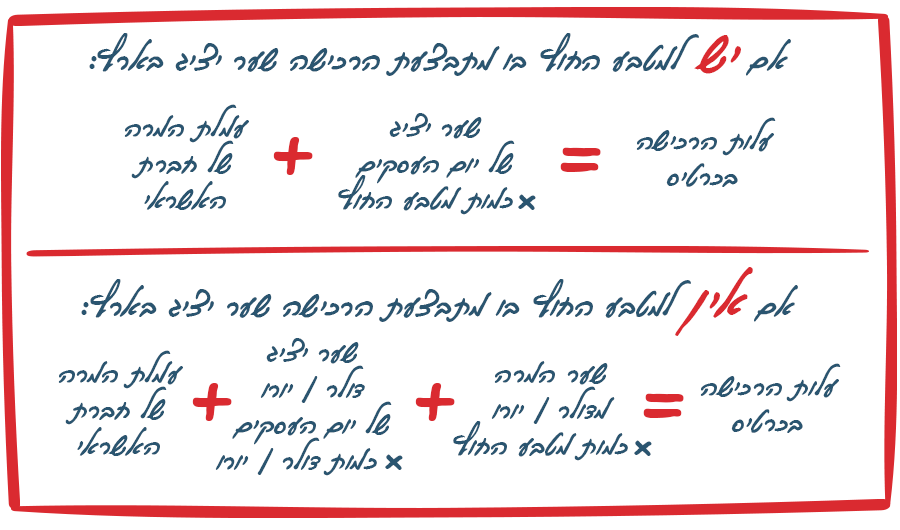 אם יש למטבע החוץ בו מתבצעת הרכישה שער יציג בארץ:
עלות הרכישה
בכרטיס
=
שער יציג
של יום העסקים
× כמות מטבע החוץ
+
עמלת המרה
של חברת
האשראי
אם אין למטבע החוץ בו מתבצעת הרכישה שער יציג בארץ:
עלות הרכישה
בכרטיס
=
שער המרה
מדולר / יורו
× כמות מטבע החוץ
+
שער יציג
דולר / יורו
של יום העסקים
× כמות דולר / יורו
+
עמלת המרה
של חברת
האשראי